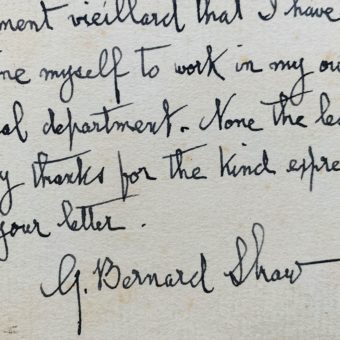 ment vieillard that I have
ne myself to work in my ow
al department. None the le
y thanks for the kind expre
your letter.
G. Bernard Shaw